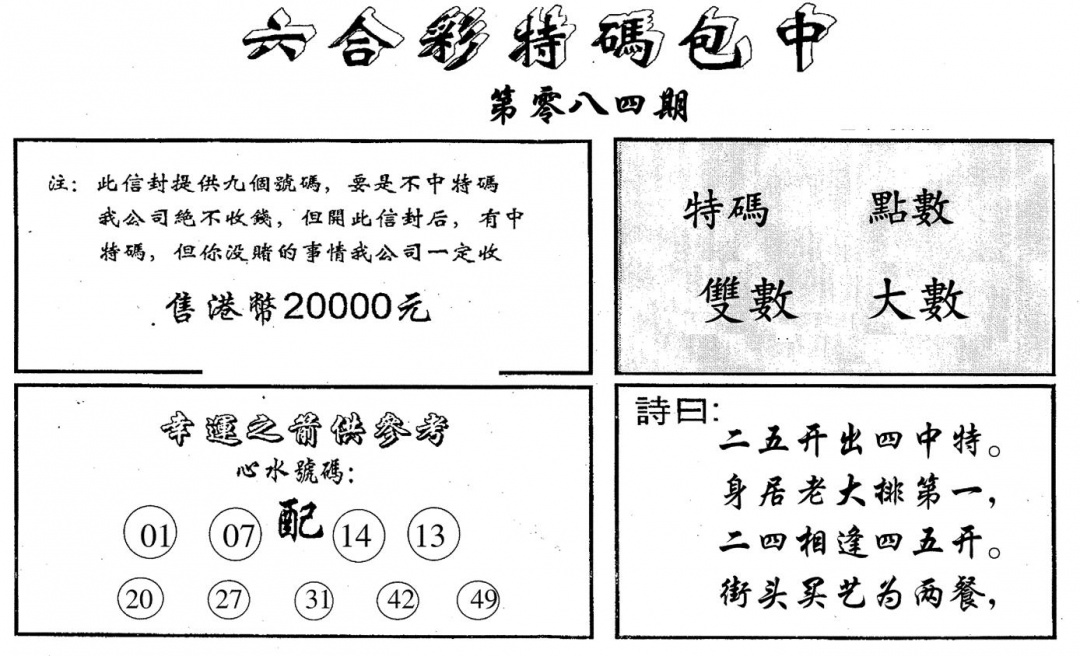 六合彩特碼包中
第零八四期
注：此信封提供九個號碼，要是不中特碼
我公司絕不收錢，但開此信封后，有中
特碼，但你没賭的事情我公司一定收
售港幣20000元
特碼 點數
雙數 大數
幸運之箭供參考
心水號碼：
配
01 07 14 13
20 27 31 42 49
詩曰：
二五开出四中特。
身居老大排第一，
二四相逢四五开。
街头买艺为两餐，